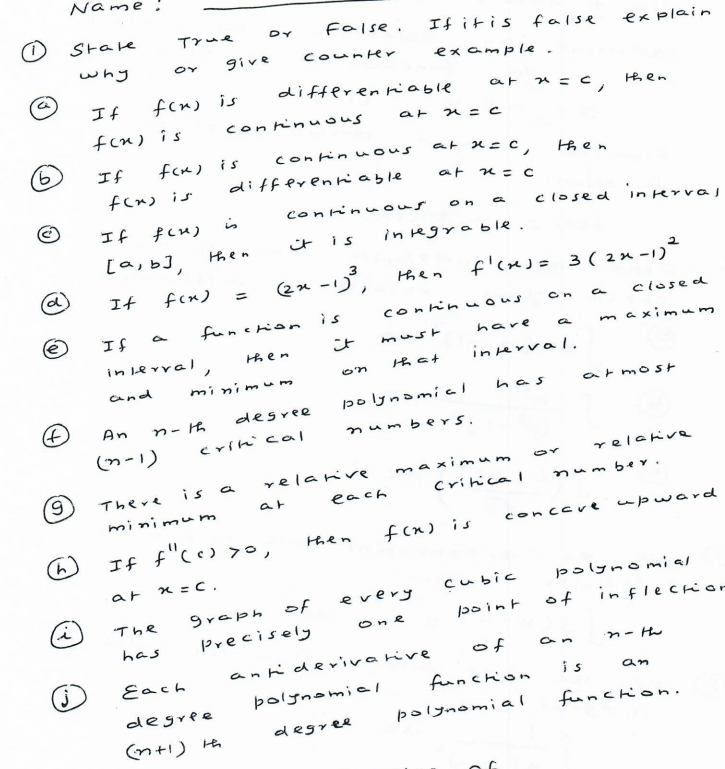 Name :
① State True or False. If it is false explain
why or give counter example.
ⓐ If f(x) is differentiable at x = c, then
f(x) is continuous at x = c
ⓑ If f(x) is continuous at x = c, then
f(x) is differentiable at x = c
ⓒ If f(x) is continuous on a closed interval
[a, b], then it is integrable.
ⓓ If f(x) = (2x - 1)³, then f'(x) = 3(2x - 1)²
ⓔ If a function is continuous on a closed
interval, then it must have a maximum
and minimum on that interval.
ⓕ An n-th degree polynomial has atmost
(n-1) critical numbers.
ⓖ There is a relative maximum or relative
minimum at each critical number.
ⓗ If f"(c) > 0, then f(x) is concave upward
at x = c.
ⓘ The graph of every cubic polynomial
has precisely one point of inflection
ⓙ Each antiderivative of an n-th
degree polynomial function is an
(n+1) th degree polynomial function.
of